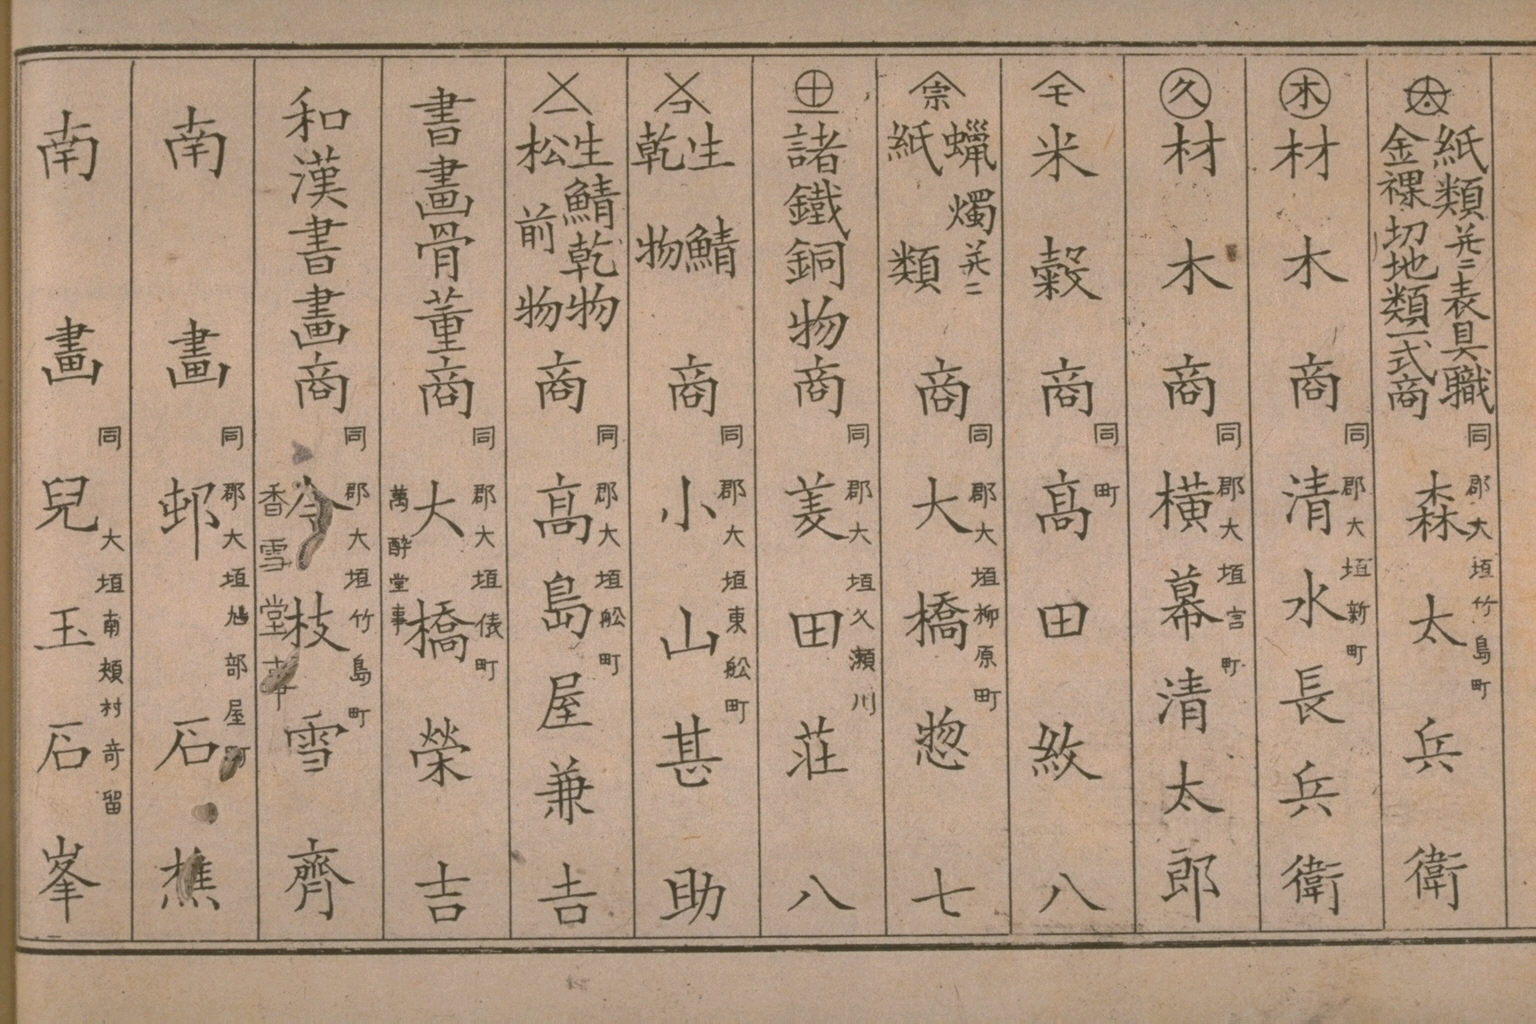 紙類并ニ表具職
金襴切地類一式商
同郡大垣竹島町
森太兵衛
木
材木商
同郡大垣新町
清水長兵衛
久
材木商
同郡大垣宮町
横幕清太郎
モ
米穀商
同町
髙田紋八
宗
蝋燭并ニ
紙類
商
同郡大垣柳原町
大橋惣七
十
諸鐵銅物商
同郡大垣久瀬川
美田荘八
コ
生鯖
乾物
商
同郡大垣東舩町
小山甚助
一
生鯖乾物
松前物
商
同郡大垣舩町
髙島屋兼吉
書畫骨董商
同郡大垣俵町
萬酔堂事
大橋榮吉
和漢書畫商
同郡大垣竹島町
香雪堂事
今枝雪齊
南畫
同郡大垣旭部屋町
邨石樵
南畫
同大垣南頬村奇留
兒玉石峯